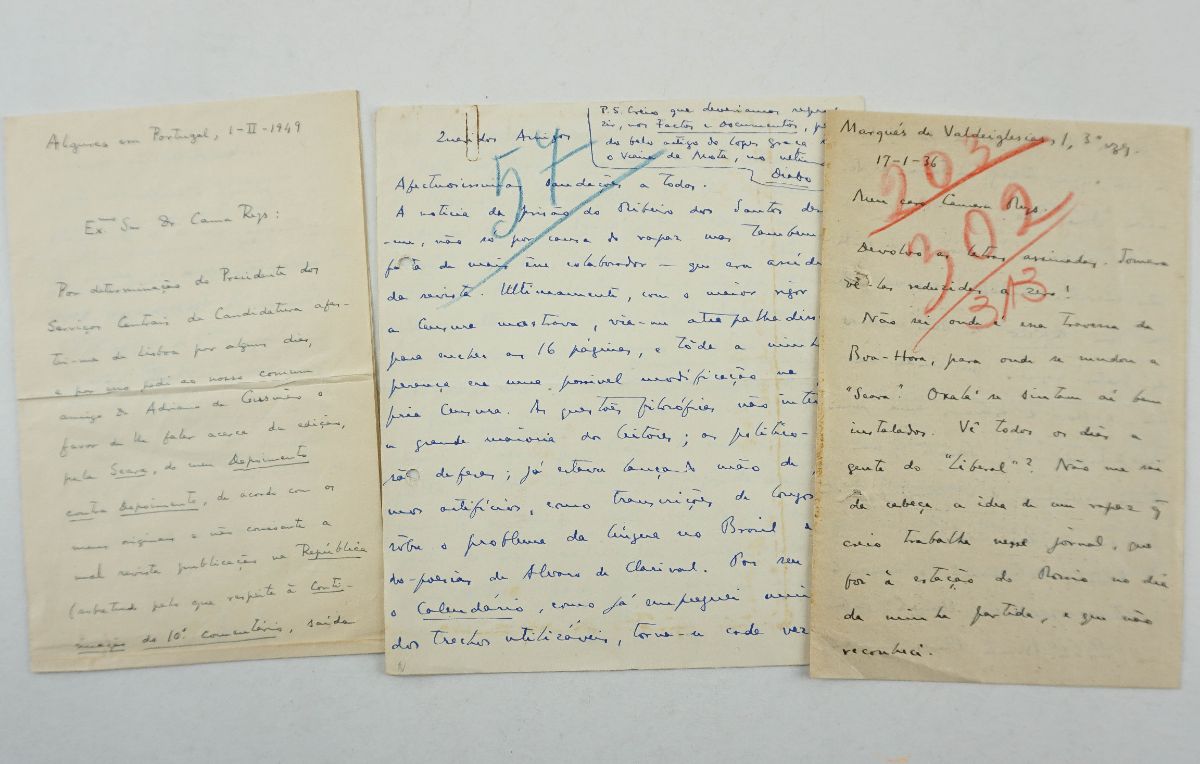 Algures em Portugal, 1-II-1949
Ex.mo Snr Dr Camara Reys:
Por determinação do Presidente dos
Serviços Centrais de Candidatura afas-
tei-me de Lisboa por alguns dias,
e por isso pedi ao nosso comum
amigo Dr Adriano de Gusmão o
favor de lhe falar acerca da edição,
pela Seara, do meu Depoimento
contra Depoimento, de acordo com os
meus originais e não consoante a
mal revista publicação na República
(sobretudo pelo que respeita à Conti-
nuação do 10º Comentário, saída
Queridos Amigos
P.S. Creio que deveriamos reprodu
zir, nos Factos e Documentos,
do belo artigo do Lopes Graça
o Viana da Mota, no último
Diabo
Afectuosissimas saudações a Todos.
A notícia da prisão do Ribeiro dos Santos
-me, não só por causa do rapaz mas também
falta de mais um colaborador — que era assíd
da revista. Ultimamente, com o maior rigor
a Censura mostrava, via-me atrapalhadiss
para encher as 16 páginas, e tôda a minh
perança era uma possível modificação na
pria Censura. As questões filosóficas não inte
a grande maioria dos leitores; as politico-
são defesas; já estava lançando mão de
mos artifícios, como transcrições de longos
sôbre o problema da língua no Brasil e
do-poesias de Alvaro de Clarival. Por seu
o Calendário, como já empreguei
dos trechos utilizáveis, torna-se cada vez
57
Marqués de Valdeiglesias, 1, 3º izq.
17-1-36
203
302
313
Meu caro Câmara Reys.
Devolvo as letras assinadas. Tomara
vê-las reduzidas a zero!
Não sei onde é essa travessa da
Boa-Hora, para onde se mudou a
"Seara". Oxalá se sintam aí bem
instalados. Vê todos os dias a
gente do "Liberal"? Não me sai
da cabeça a idea de um rapaz q̃
creio trabalha nesse jornal, que
foi à estação do Rossio no dia
da minha partida, e que não
reconheci.